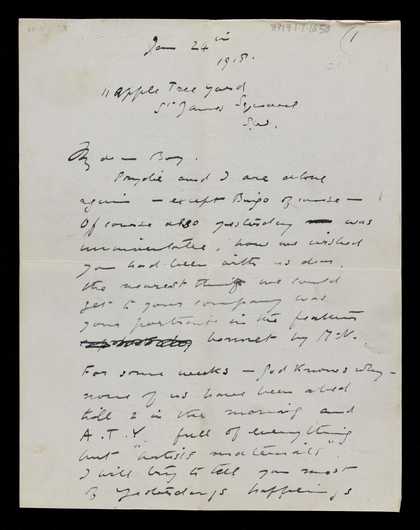 Jan 24th
1918.
11 Apple Tree Yard
St James Square
S.W.
My dear Boy.
and I are alone
again — except Bingo of course —
Of course also yesterday was
how we wished
you had been with us dear.
the nearest thing we could
get to your company was
your portrait in the feather
bonnet by McN.
For some weeks — God knows why —
none of us have been abed
till 2 in the morning and
A.T.Y. full of everything
but "artists materials".
I will try to tell you most
of yesterdays happenings